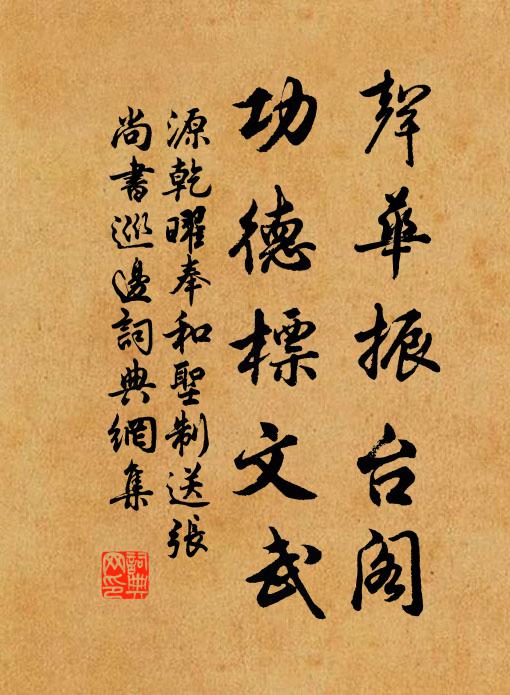 聲華振台閣
功德標文武
源乾曜奉和聖制送張
尚書巡邊詞典網集
詞典
网印